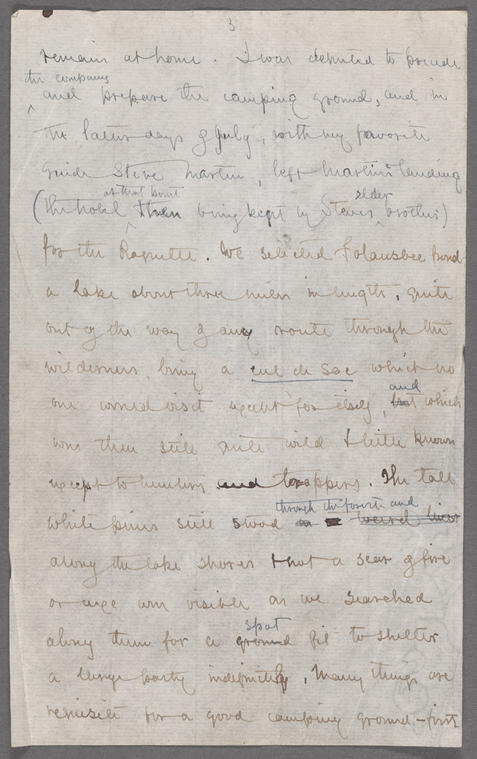 3
remain at home. I was deputed to precede
the company
and prepare the camping ground, and in
the latter days of July, with my favorite
guide Steve Martin, left Martin's landing
at that point elder
(the hotel then being kept by Steve's brother)
for the Raquette. We selected Folansbee Pond
a lake about three miles in length, quite
out of the way of any route through the
wilderness, being a cul de sac which no
and
one would visit except for itself, but which
was then still quite wild & little known
except to hunters and trappers. The tall
through the forests and
white pines still stood
along the lake shores & not a scar of fire
or axe was visible as we searched
spot
along them for a ground fit to shelter
a large party indefinitely. Many things are
requisite for a good camping ground – first